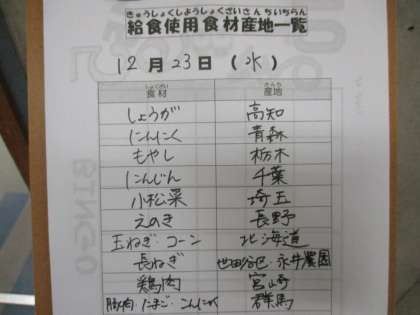 きゅうしょくしようしょくざいさんちいちらん
給食使用食材産地一覧
12月23日(水)
しょくざい さんち
食材 産地
しょうが 高知
にんにく 青森
もやし 栃木
にんじん 千葉
小松菜 埼玉
えのき 長野
玉ねぎ・コーン 北海道
長ねぎ 世田谷区・永井農園
鶏肉 宮崎
豚肉・たまご・こんにゃく 群馬
BINGO